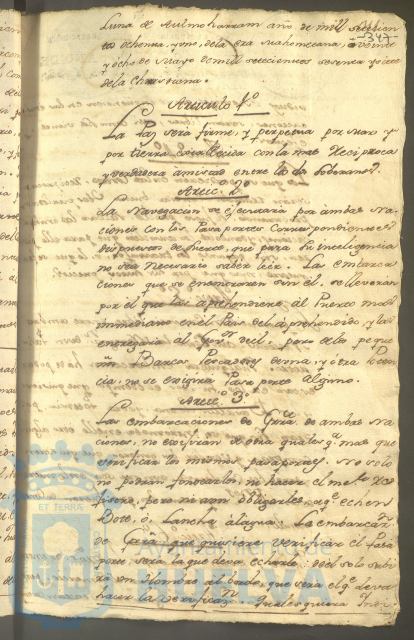 Luna de Almoharram año de mill, 
347
to ochenta, y uno, de la era Mahometana, a veinte
y ocho de Mayo de mil setecientos sesenta y siete
de la Christiana.
Articulo 1º
La Paz será firme, y perpetua por mar, y
por tierra establecida con la mas reciproca
y verdadera amistad entre los dos Soberanos.
Artic.º 2º
La Navegacion se ejecutará por ambas Na-
ciones con los Pasaportes correspondientes
dispuestos de suerte, que para su inteligencia
no sea necesario saber leer. Las embarca-
ciones que se encontraren sin él, se llevarán
por el que las aprehendiere al Puerto mas
inmediato en el Pais del aprehendido, y las
entregará al Gov.or de él, pero à los peque-
ñ Barcos Pescadores de una, y otra Poten-
cia, no se exigirá Pasaporte Alguno.
Artic.º 3º
Las embarcaciones de Grra. de ambas Na-
ciones, no exigirán de otra qualesq.ª mas que
verificar los mismos Pasaportes. No solo
no podrán fondearlos, ni hacer el men.r Re-
gistro, pero ni aun obligarles, a q.e echen
Bote, o, Lancha al agua. La embarca.on
de Grra. que quisiere verificar el Pasa-
porte será la que deva echarlo; del solo subi-
rá un Hombre al bordo, que será el q.e deva
hacer la verificaz.n Qualesquiera Indi-
ET TERRÆ
Ayuntamiento de
HUELVA